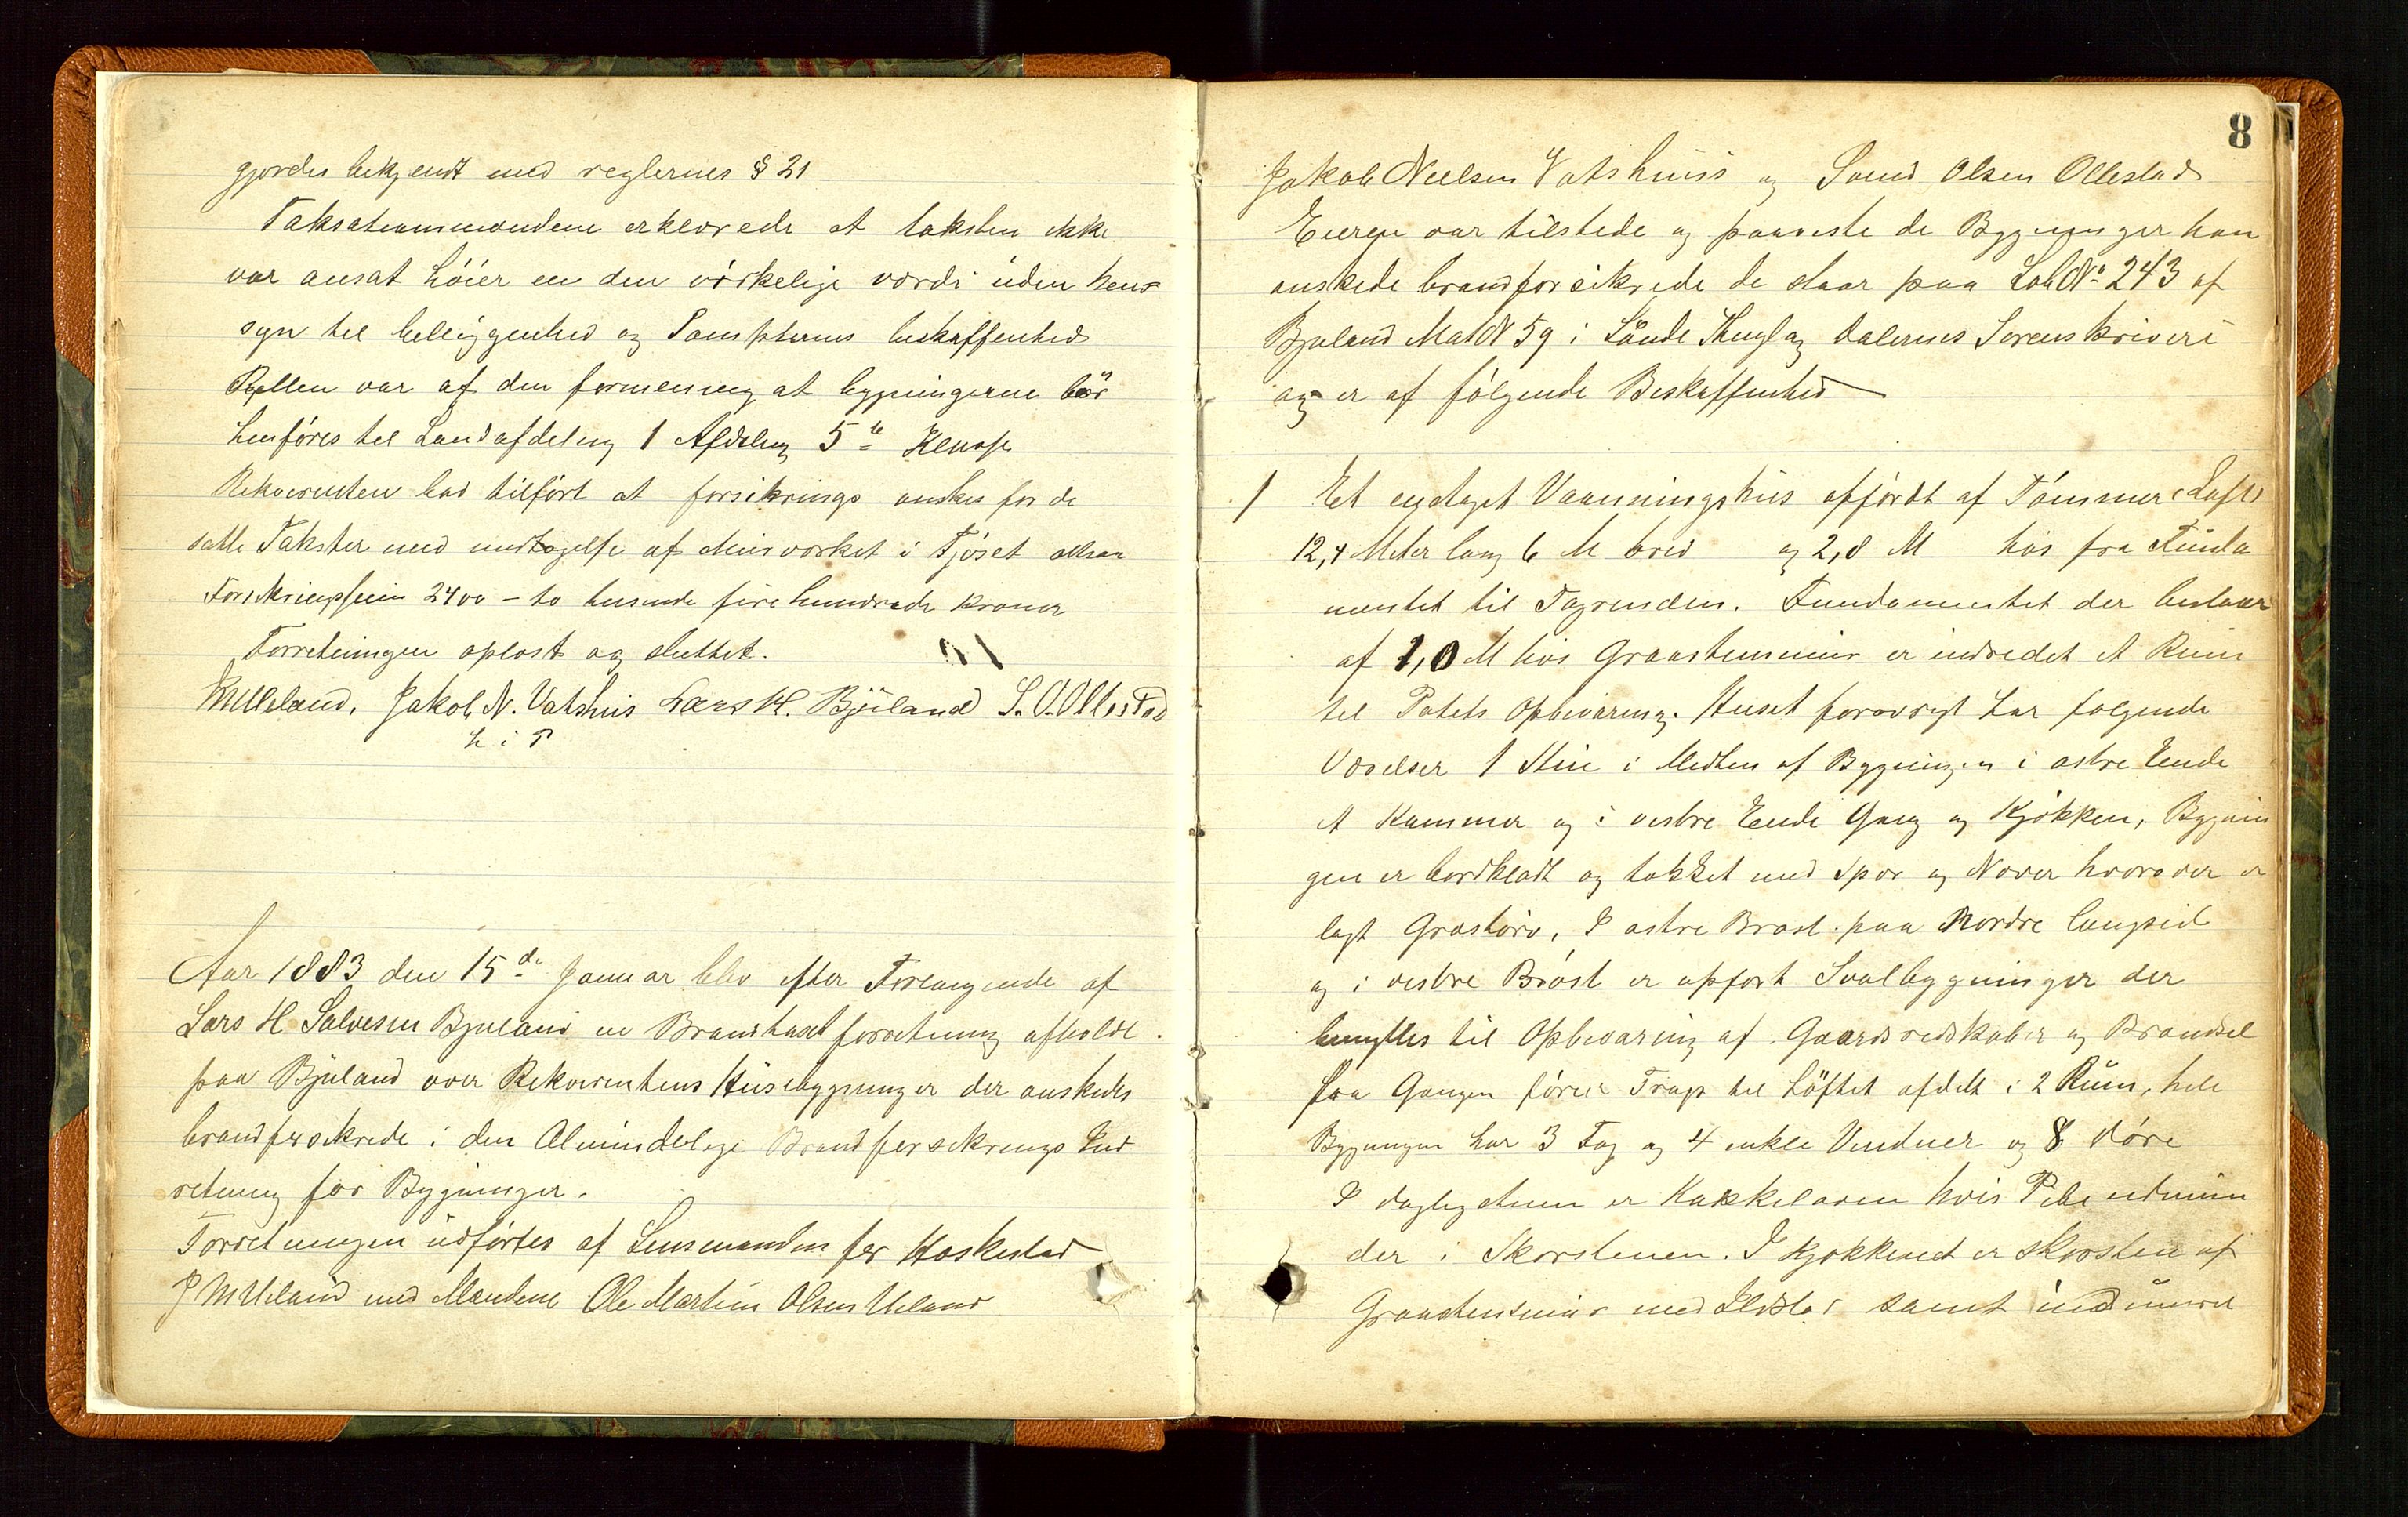 gjordes bekjendt med reglernes § 21
Taksationsmændene erklærede at taksten ikke
var ansat höier en den virkelige værdi uden hen
syn til beliggenhed og Tompternes beskaffenhed
Retten var af den formening at bygningerne bör
henföres til Landafdeling 1 Afdeling 5te Klasse
Rekvirenten bad tilfört at forsikrings önskes for de
satte Takster med undtagelse af Murværket i Fjöset altsaa
Forsikringssum 2400 – to tusinde fire hundrede kroner
Forretningen oplæst og sluttet.
Jakob N. Vatshus Lars H. Bjuland S. O. Ollestad
h i P
Aar 1883 den 15de Januar blev efter Forlangende af
Lars H Salvesen Bjuland en Brandtaxtforretning afholdt
paa Bjuland over Rekvirentens Husebygninger der önskedes
brandforsikrede i den Almindelige Brandforsikrings Ind
retning for Bygninger.
Forretningen udförtes af Lensmanden for Heskestad
med Mændene Ole Martin Olsen Ueland
8
Jakob Nielsen Vatshuus og Svend Olsen Ollestad
Eieren var tilstede og paaviste de Bygninger han
önskede brandforsikrede de staar paa Löb No 243 af
Bjuland Mat N 59 i Lunde Thinglag Dalernes Sorenskriveri
og er af fölgende Beskaffenhed
1 Et enetaget Vaaningshus opfördt af Tömmer (Laft)
12,4 Meter lang 6 M bred og 2,8 M höi fra Funda
mentet til Tagrenden. Fundamentet der bestaar
af 1,0 M höi Graastensmur er indredet et Rum
til Potets Opbevaring. Huset forövrigt har fölgende
Værelser 1 Stue i Midten af Bygningen i östre Ende
et Kammer og i vestre Ende Gang og Kjökken, Bygnin
gen er bordklædt og tækket med Spær og Næver hvorover er
lagt Græstörv, I östre Bröst paa Nordre langside
og i vestre Bröst er opfört Svalbygninger der
benyttes til Opbevaring af Gaardsredskaber og Brændsel
fra Gangen förer Trap til Löftet afdelt i 2 Rum, hele
Bygningen har 3 Fag og 4 enkle Vinduer og 8 Döre
I dagligstuen er Kakkelovn hvis Pibe udmun
der i Skorstenen. I Kjökkenet er Skorsten af
Graastensmur med Ildsted samt indmuret